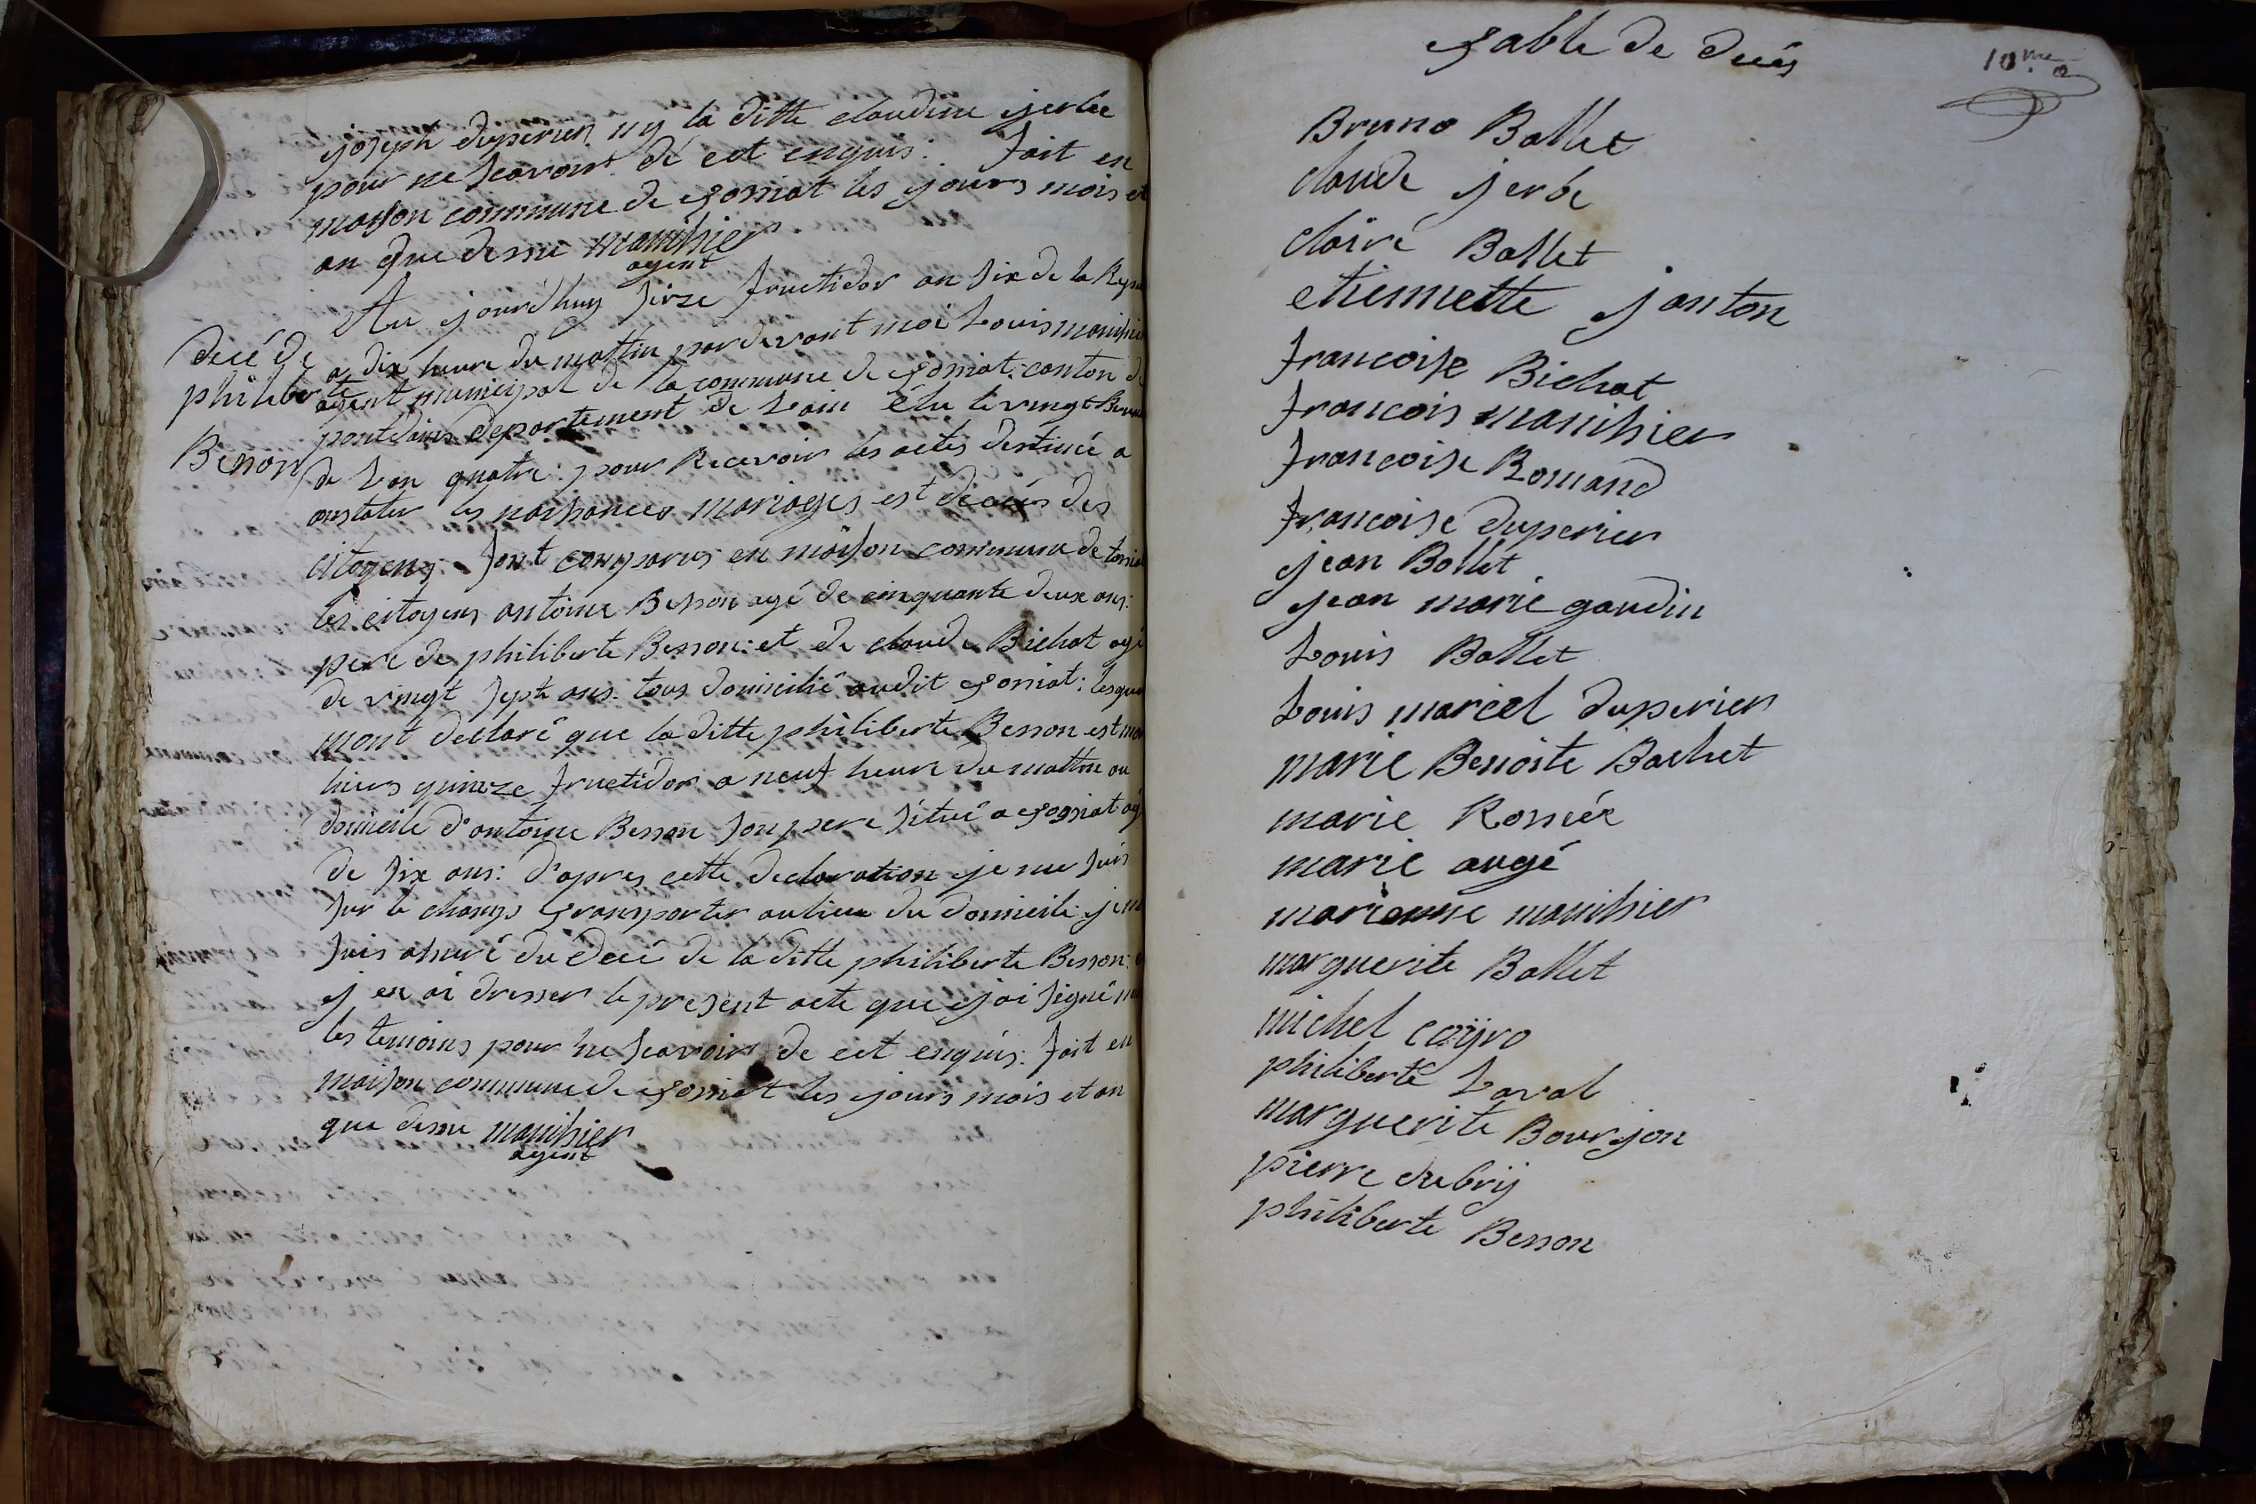 joseph duperier ny la ditte claudine jerbe
pour ne scavoir de cet enquis: fait en
maison commune de Tossiat les jours mois et
an que dessu manihier
agent
Au jourd'huy seize fructidor an six de la Repu
decé de
philiberte
Besson
a dix heure du mattin par devant moi Louis manihie
agent municipal de la commune de Tossiat: canton de
pontdains departement de Lain élu le vingt Brum
de Lan quatre: pour Recevoir les actes destiné a
constater les naissances mariages est décés des
citoyens sont comparus en maison commune de tossia
les citoyens antoine Besson agé de cinquante deux ans:
pere de philiberte Besson: et de claude Bichat agé
de vingt sept ans: tous domicilié audit Tossiat: lesque
mont declaré que la ditte philiberte Besson est mor
hiers quinze fructidor a neuf heure du mattin au
domicile d'antoine Besson son pere situé a Tossiat agé
de six ans: d'apres cette declaration je me suis
sur le champs transporter au lieu du domicile: je m
suis assuré du decé de la ditte philiberte Besson:
j en ai dresser le present acte que j'ai signé
les temoins pour ne scavoir de cet enquis: fait en
maison commune de Tossiat les jours mois et an
que dessu manihier
agent
Table de decés
10me
Bruno Ballet
claude jerbe
claire Ballet
etiennette janton
francoise Bichat
francois manihier
francoise Romand
francoise duperier
jean Ballet
jean marie gaudin
Louis Ballet
Louis marcel duperier
marie Benoite Bachet
marie Rossiér
marie augé
marienne manihier
marguerite Ballet
michel cayro
philiberte Laval
marguerite Bourjon
pierre dubrij
philiberte Besson